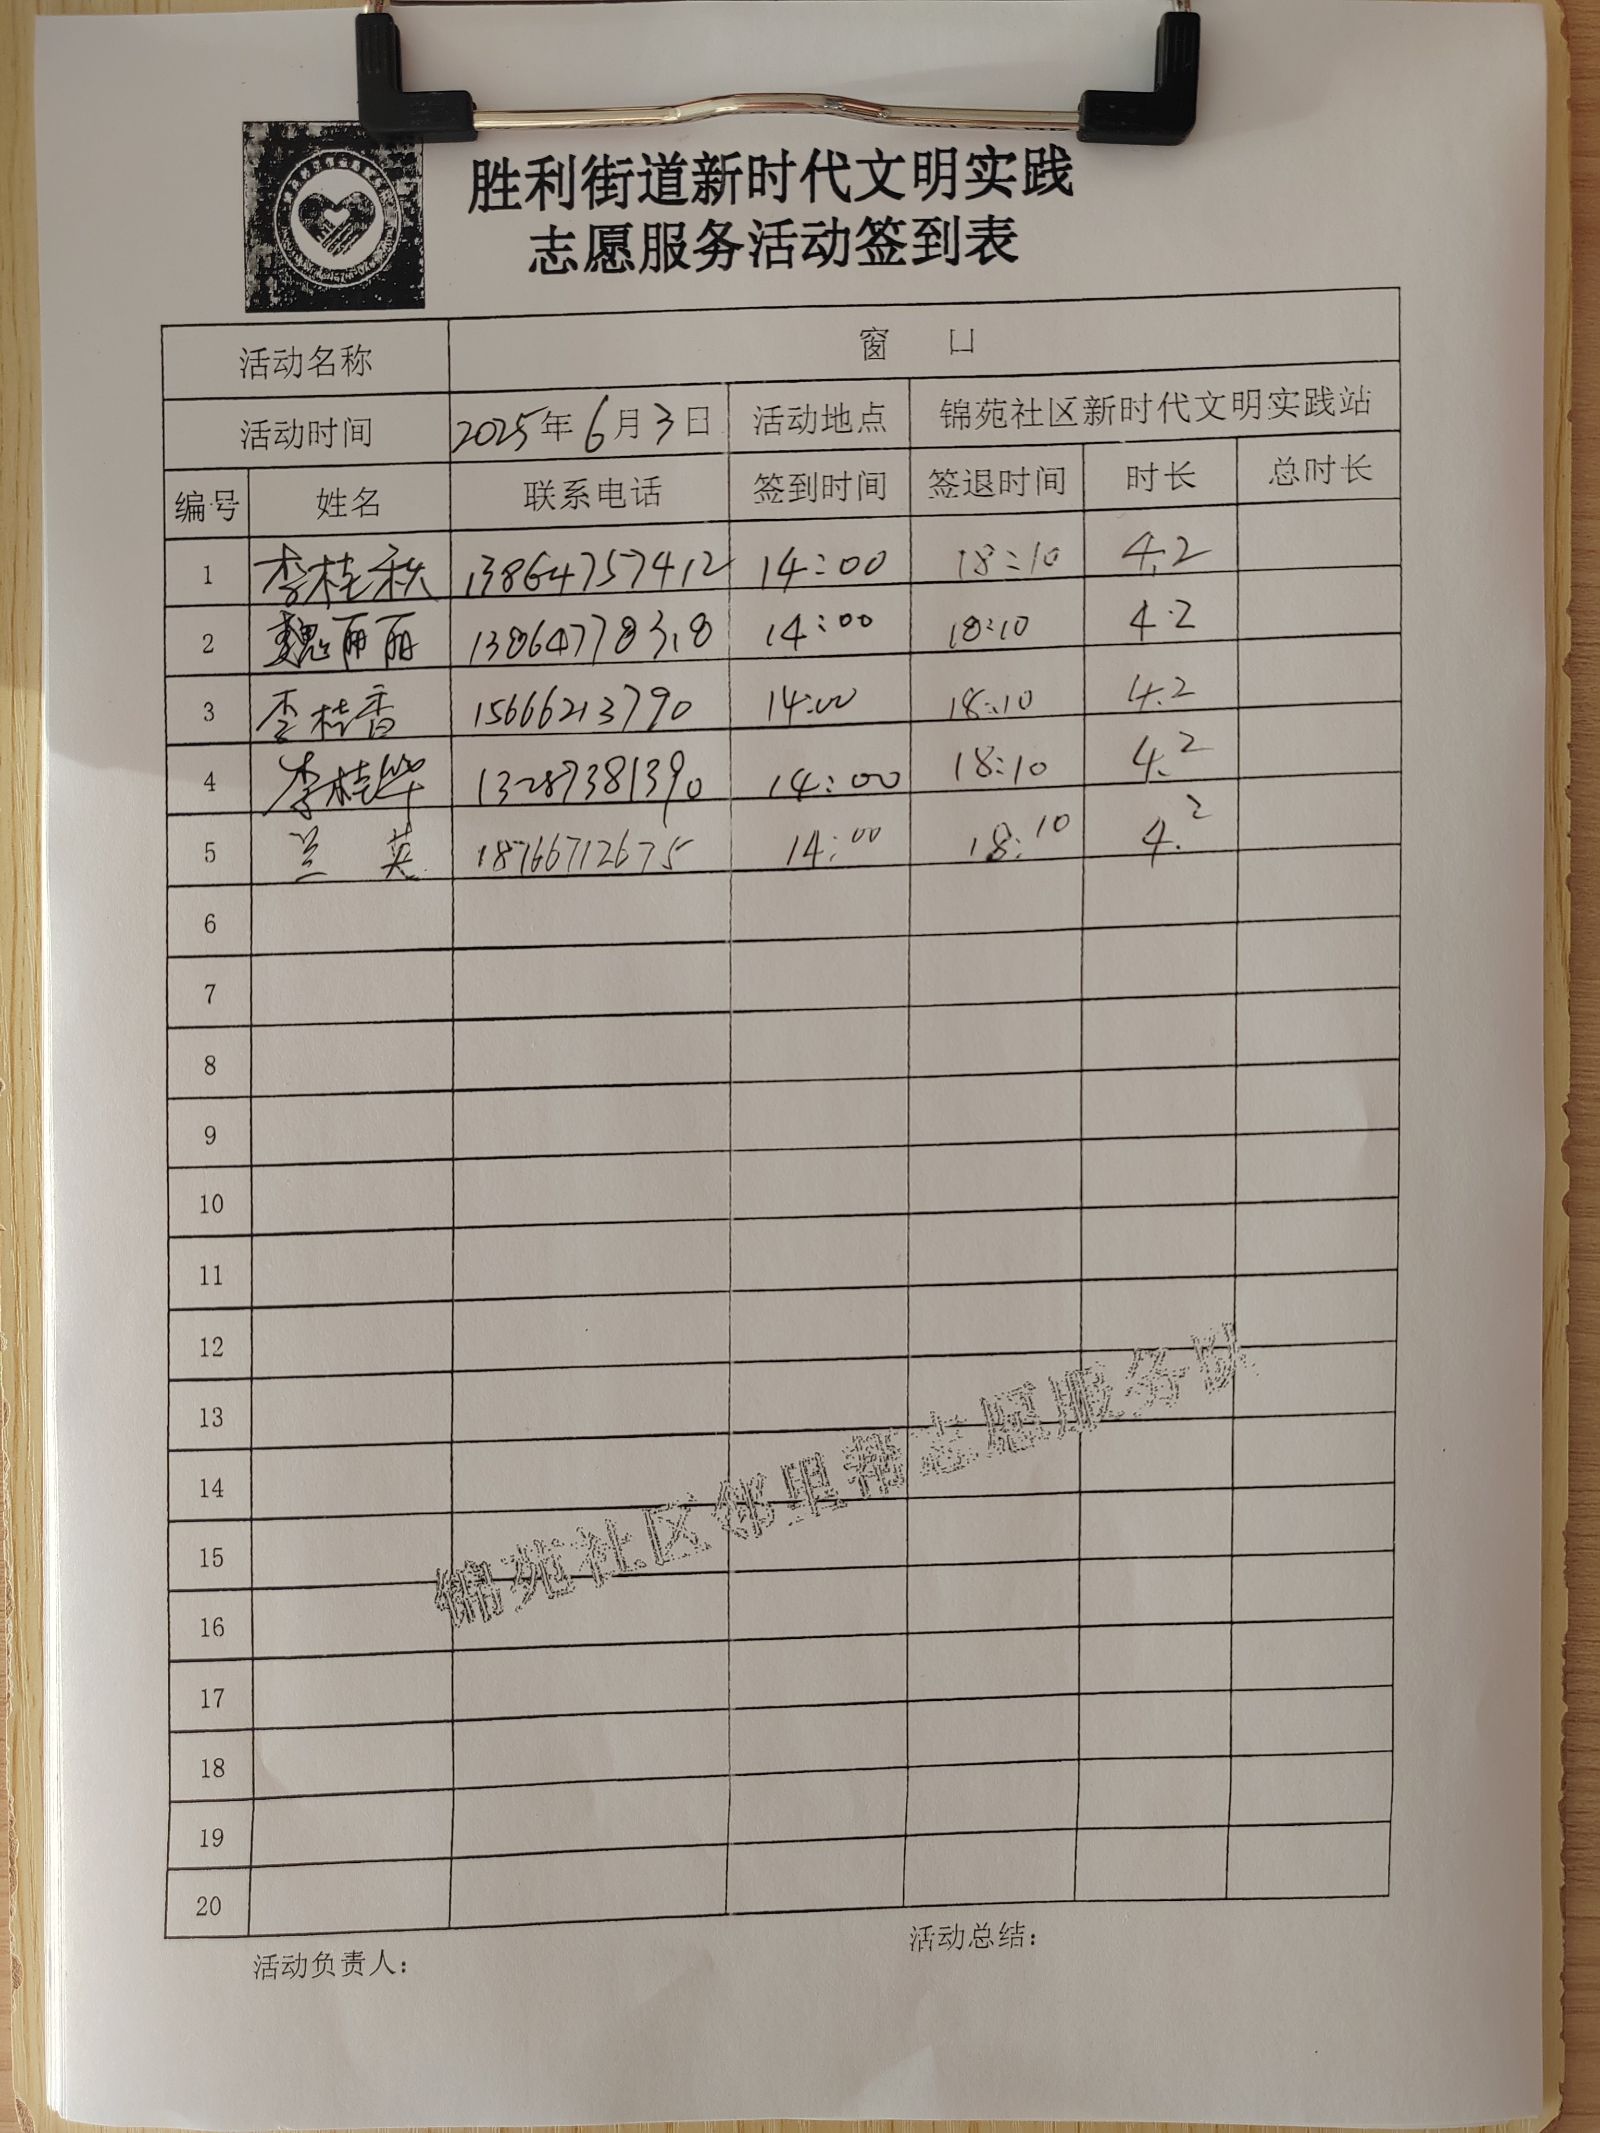 胜利街道新时代文明实践
志愿服务活动签到表
活动名称 窗 口
活动时间 2025年6月3日 活动地点 锦苑社区新时代文明实践站
编号 姓名 联系电话 签到时间 签退时间 时长 总时长
1 李桂秋 13864757412 14:00 18:10 4.2
2 魏丽丽 13864778318 14:00 18:10 4.2
3 李桂香 15666213790 14:00 18:10 4.2
4 李桂华 13287381390 14:00 18:10 4.2
5 兰英 18766712675 14:00 18:10 4.2
6
7
8
9
10
11
12
13
14
15
16
17
18
19
20
锦苑社区邻里帮志愿服务队
活动负责人： 活动总结：